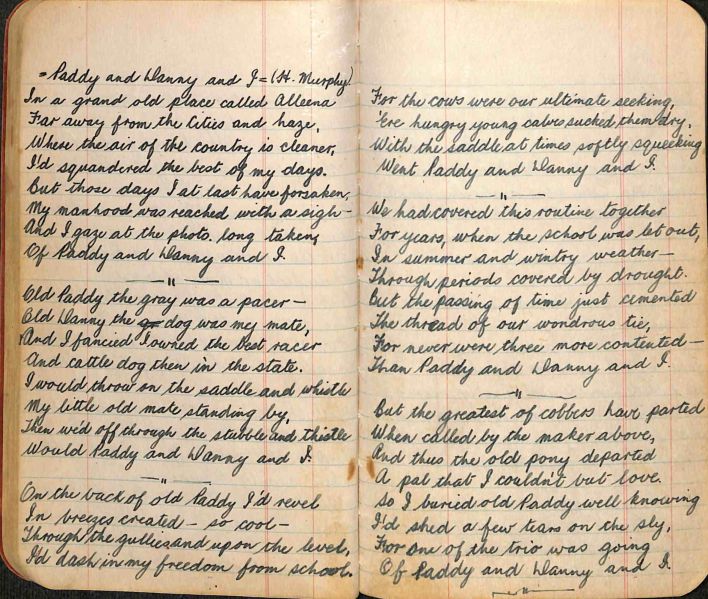 = Paddy and Danny and I = (H. Murphy)
In a grand old place called Alleena
Far away from the Cities and haze,
Where the air of the country is cleaner,
I'd squandered the best of my days.
But those days I at last have forsaken,
My manhood was reached with a sigh -
And I gaze at the photo. long taken,
Of Paddy and Danny and I.
Old Paddy the gray was a pacer -
Old Danny the dog was my mate,
And I fancied I owned the best racer
And cattle dog then in the state.
I would throw on the saddle and whistle
My little old mate standing by,
Then we'd off through the stubble and thistle
Would Paddy and Danny and I.
On the back of old Paddy I'd revel
In breezes created - so cool -
Through the gullies and upon the level,
I'd dash in my freedom from school.
For the cows were our ultimate seeking,
'Ere hungry young calves sucked them dry.
With the saddle at times softly squeeking
Went Paddy and Danny and I.
We had covered this routine together
For years, when the school was let out,
In summer and wintry weather -
Through periods covered by drought.
But the passing of time just cemented
The thread of our wondrous tie,
For never were three more contented -
Than Paddy and Danny and I.
But the greatest of cobbers have parted
When called by the maker above,
And thus the old pony departed
A pal that I couldn't but love.
So I buried old Paddy well knowing
I'd shed a few tears on the sly,
For one of the trio was going
Of Paddy and Danny and I.